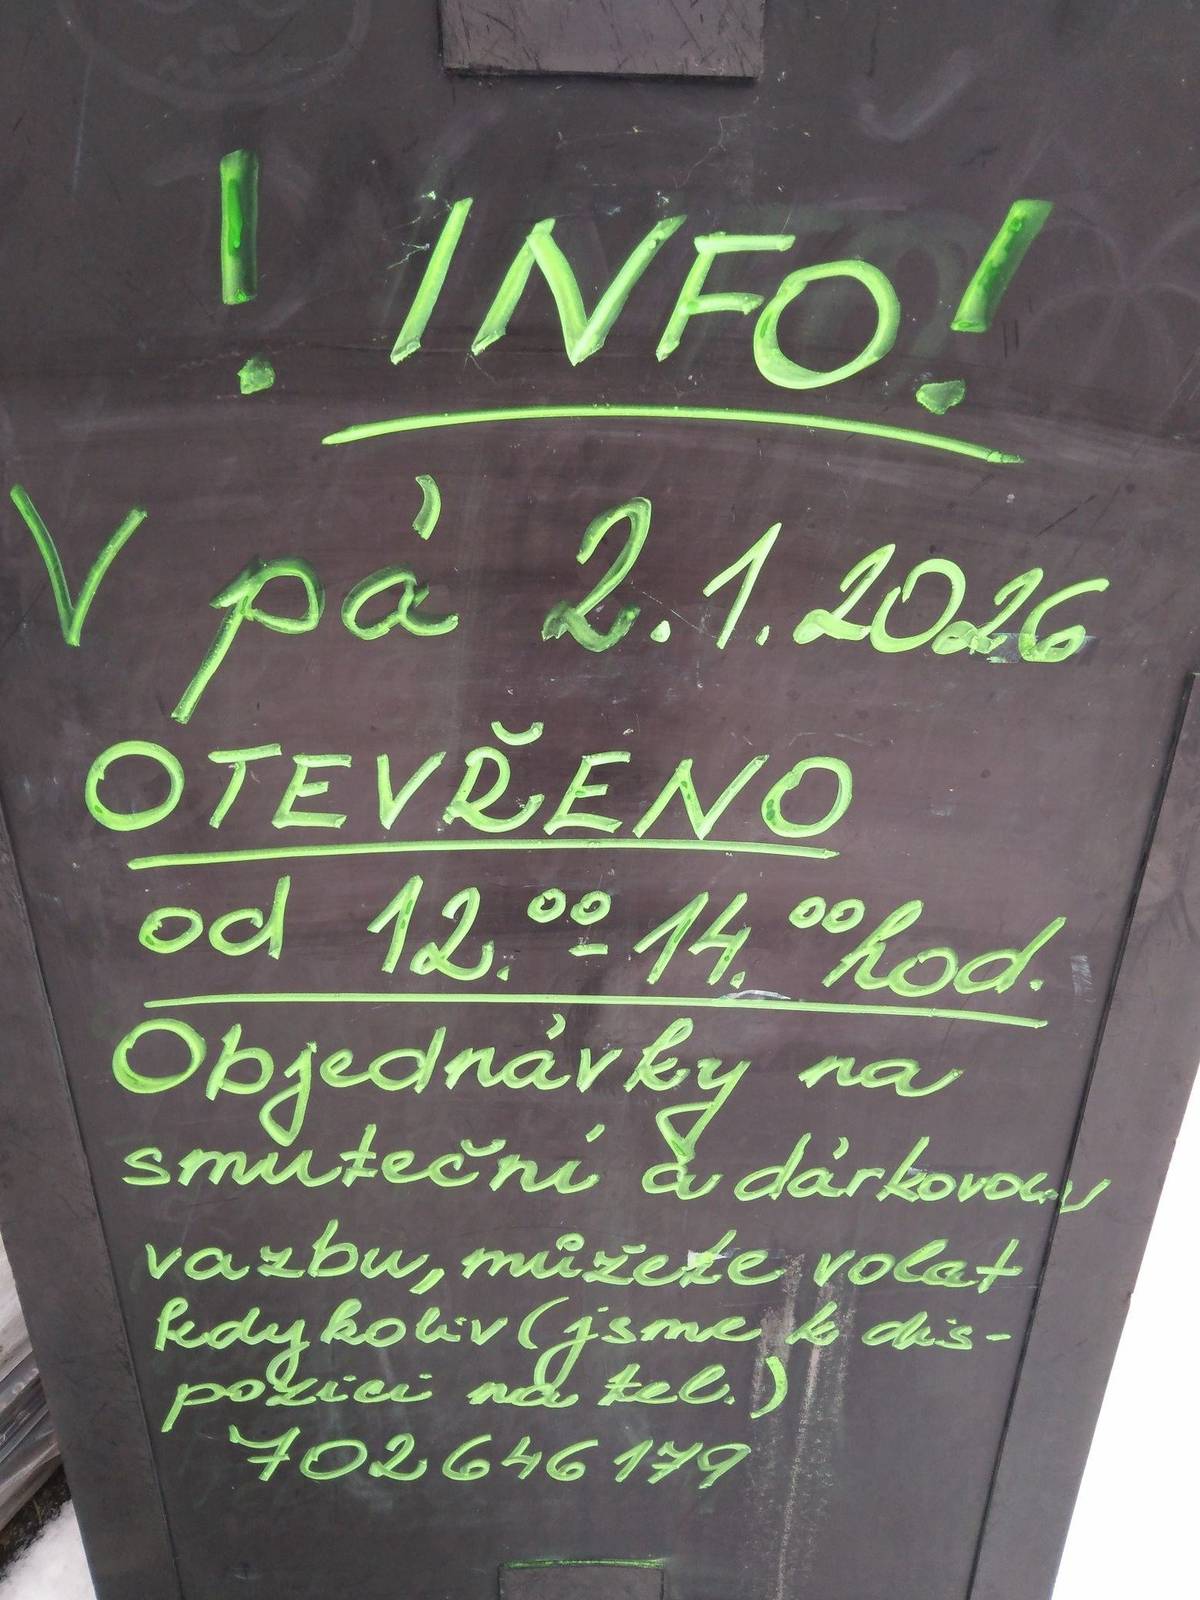 ! INFO!
V pá 2.1.2026
OTEVŘENO
od 12.00 - 14.00 hod.
Objednávky na
smuteční a dárkovou
vazbu, můžete volat
kdykoliv (jsme k dis-
pozici na tel.)
702646179